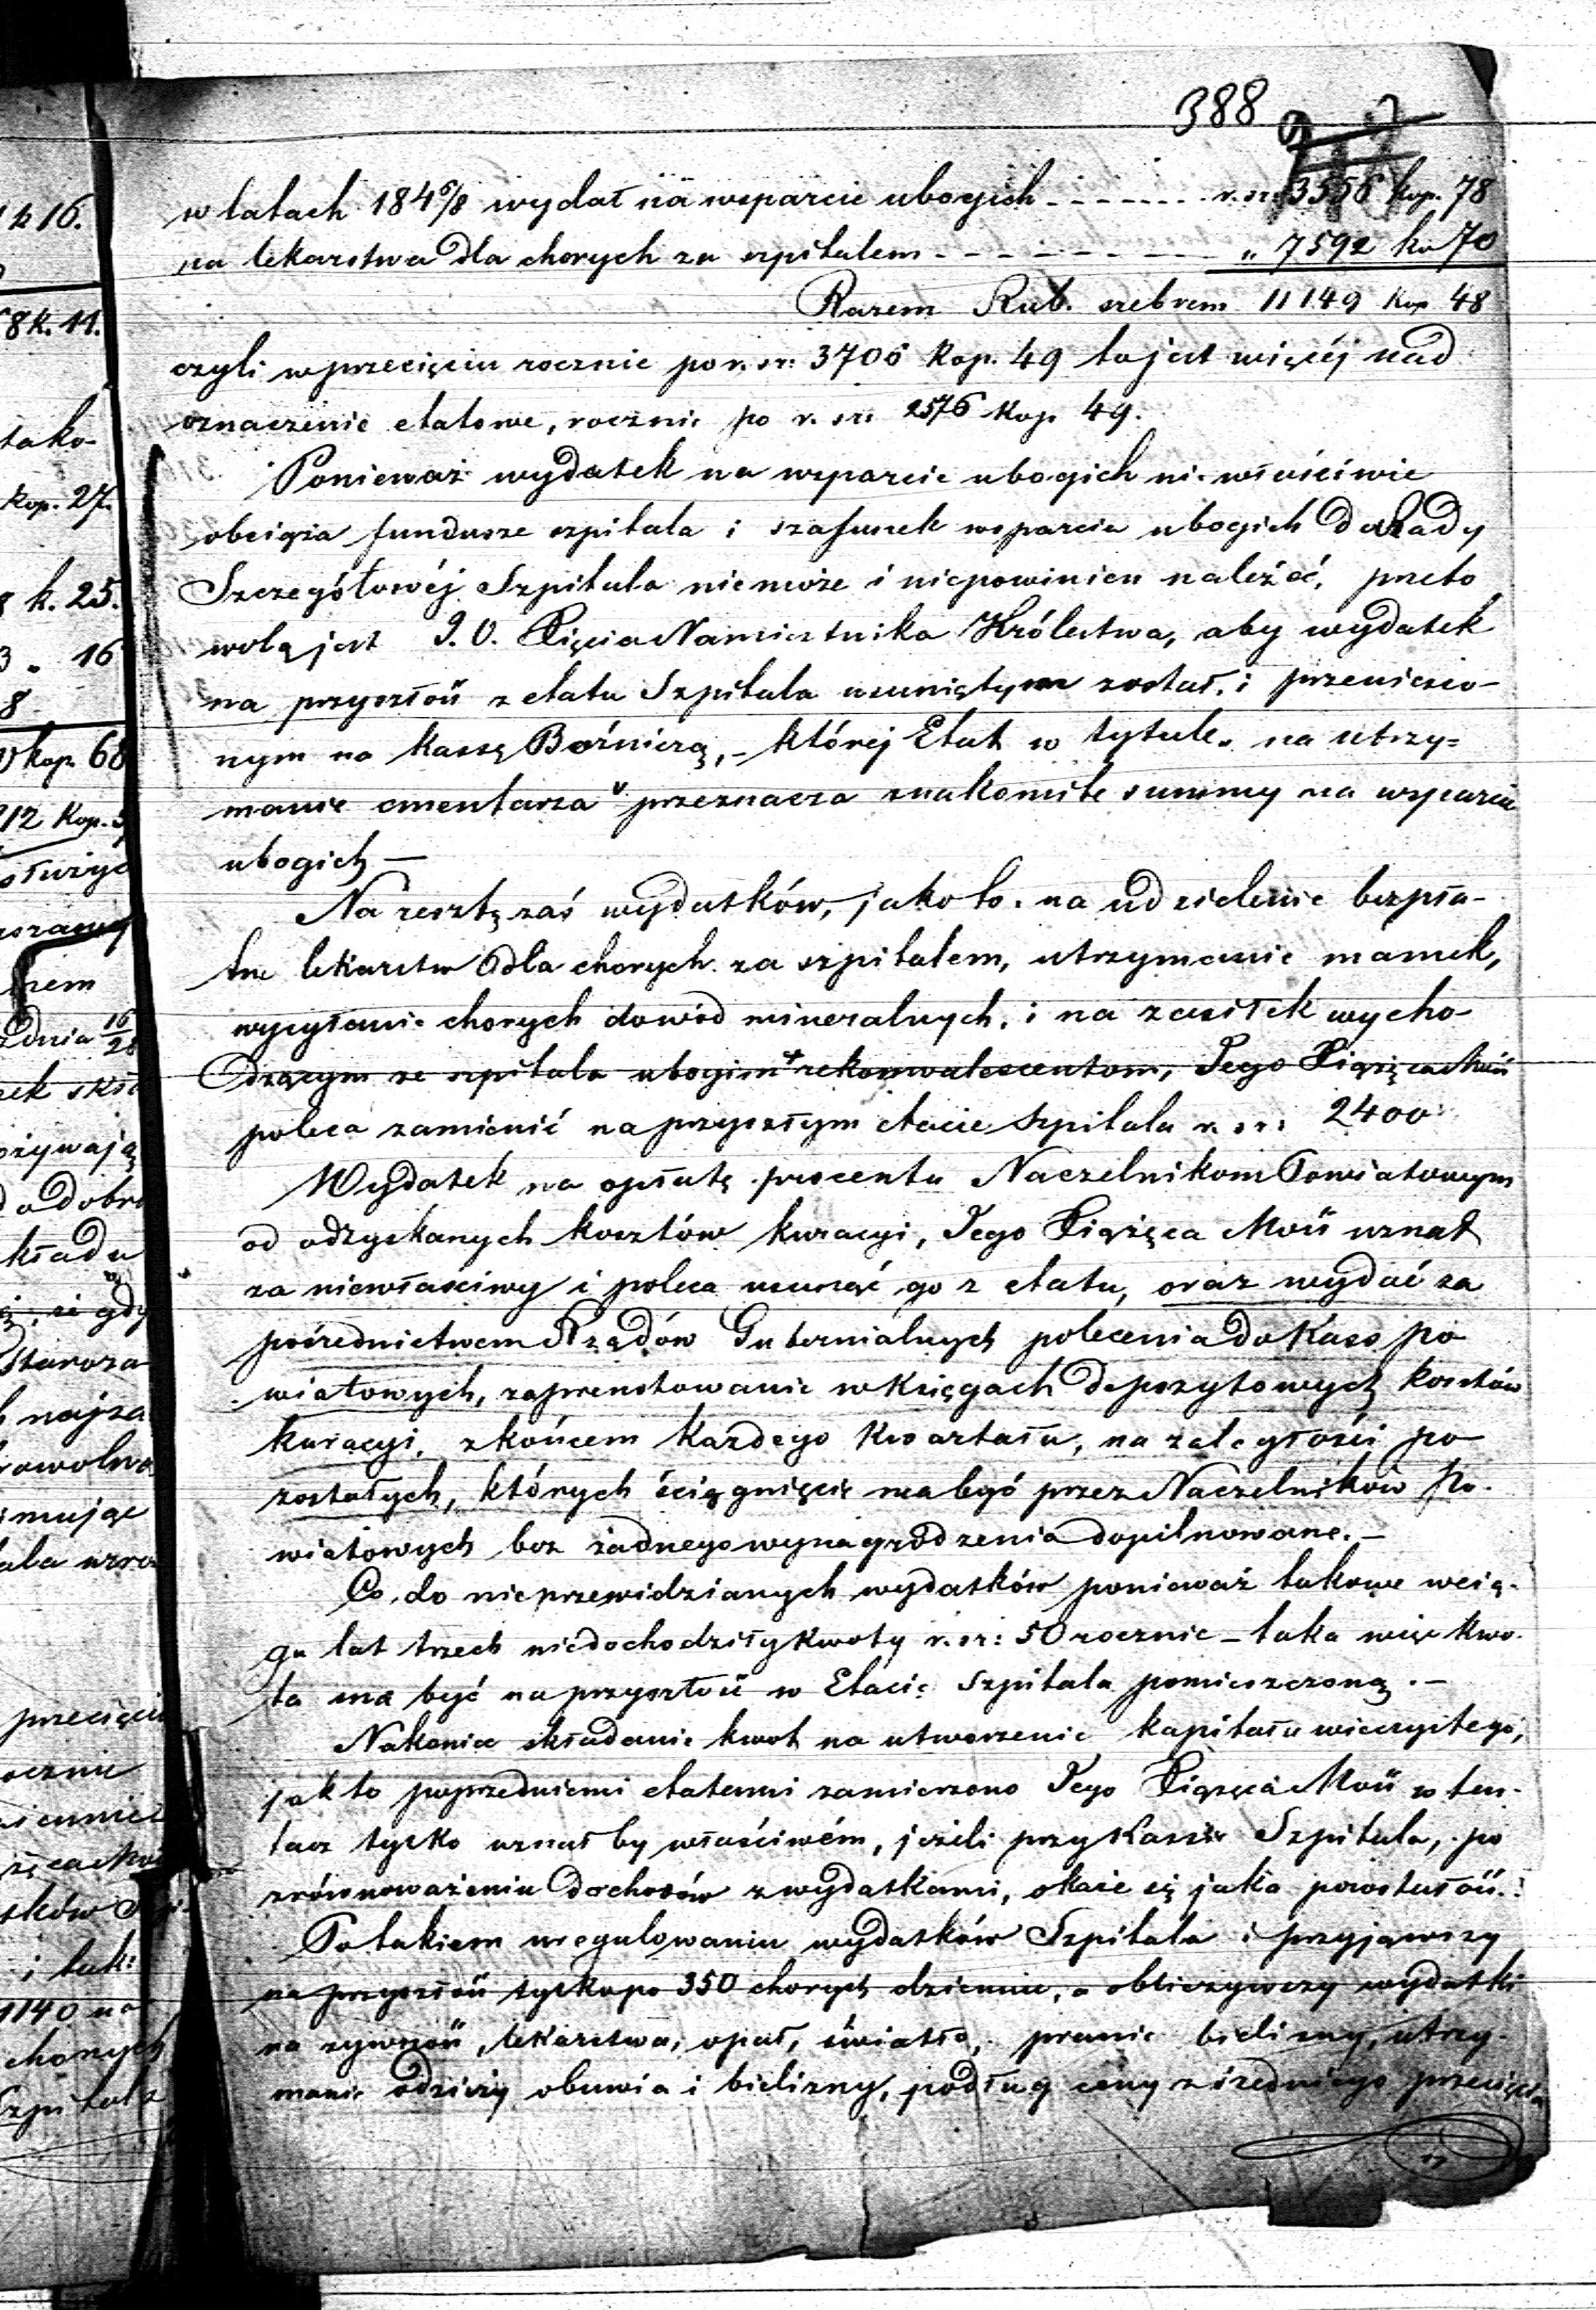 388
w latach 184 6/8 wydał na wsparcie ubogich - - - - - - - r. sr: 3556 kop. 78
na lekarstwa dla chorych za szpitalem - - - - - - - - - " 7592 k. 70
Razem Rub. srebrem 11149 kop 48
czyli w przecięciu rocznie po r. sr: 3706 kop. 49 to jest więcéj nad
oznaczenie etatowe, rocznie po r. sr: 2576 kop. 49.
Ponieważ wydatek na wsparcie ubogich niewłaściwie
obciąża fundusze szpitala i szafunek wsparcia ubogich do Rady
Szczegółowéj Szpitala niemoże i niepowinien należéć, przeto
wolą jest J. O. Xięcia Namiestnika Królestwa, aby wydatek
na przyszłość z etatu Szpitala usuniętym został, i przeniesio-
nym na kassę Bóźniczą, - której Etat w tytule „ na utrzy=
manie cmentarza " przeznacza znakomite summy na wsparcie
ubogich —
Na resztę zaś wydatków, jako to. na udzielenie bezpła-
tne lekarstw dla chorych za szpitalem, utrzymanie mamek,
wysyłanie chorych do wód mineralnych, i na zasiłek wycho-
dzącym ze szpitala ubogim + rekonwalescentom, Jego Xiążęca Mość
poleca zamienić na przyszłym etacie Szpitala r. sr: 2400
Wydatek na opłatę procentu Naczelnikom Powiatowym
od odzyskanych kosztów kuracyi, Jego Xiążęca Mość uznał
za niewłaściwy i poleca usunąć go z etatu, oraz wydać za
pośrednictwem Rządów Gubernialnych polecenia do Kass po
wiatowych, zaprenotowanie w księgach depozytowych kosztów
kuracyi, z końcem każdego kwartału, na zaległości po
zostałych, których ściągnięcie ma być przez Naczelników Po-
wiatowych bez żadnego wynagrodzenia dopilnowane. —
Co do nieprzewidzianych wydatków ponieważ takowe wcią-
gu lat trzech niedochodziły kwoty r. sr: 50 rocznie - taka więc kwo-
ta ma być na przyszłość w Etacie Szpitala pomieszczoną. —
Nakoniec składanie kwot na utworzenie kapitału wieczystego,
jak to poprzedniemi etatami zamierzono Jego Xiążęca Mość w ten-
czas tylko uznałby właściwém, jeżeli przy Kassie Szpitala, po
zrównoważeniu dochodów z wydatkami, okaże się jaka pozostałość.
Po takiem uregulowaniu wydatków Szpitala i przyjąwszy
na przyszłość tylko po 350 chorych dziennie, a obliczywszy wydatki
na żywność, lekarstwa, opał, światło, pranie bielizny, utrzy-
manie odzieży obuwia i bielizny, podług ceny z średniego przecięcia